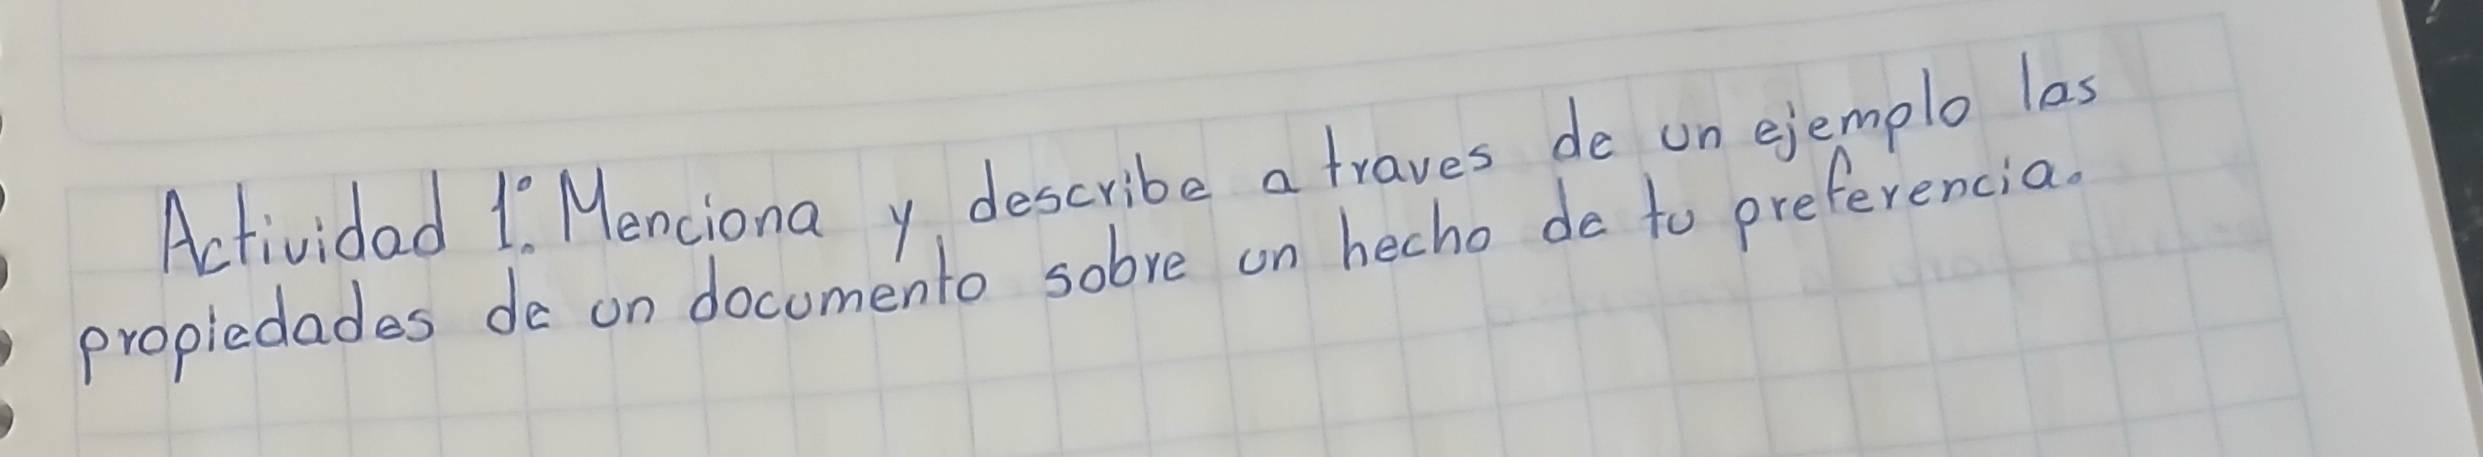 Actividad 1°. Menciona y describe a traves de un ejemplo las
propiedades de un documento sobre un hecho de tu preferencia.